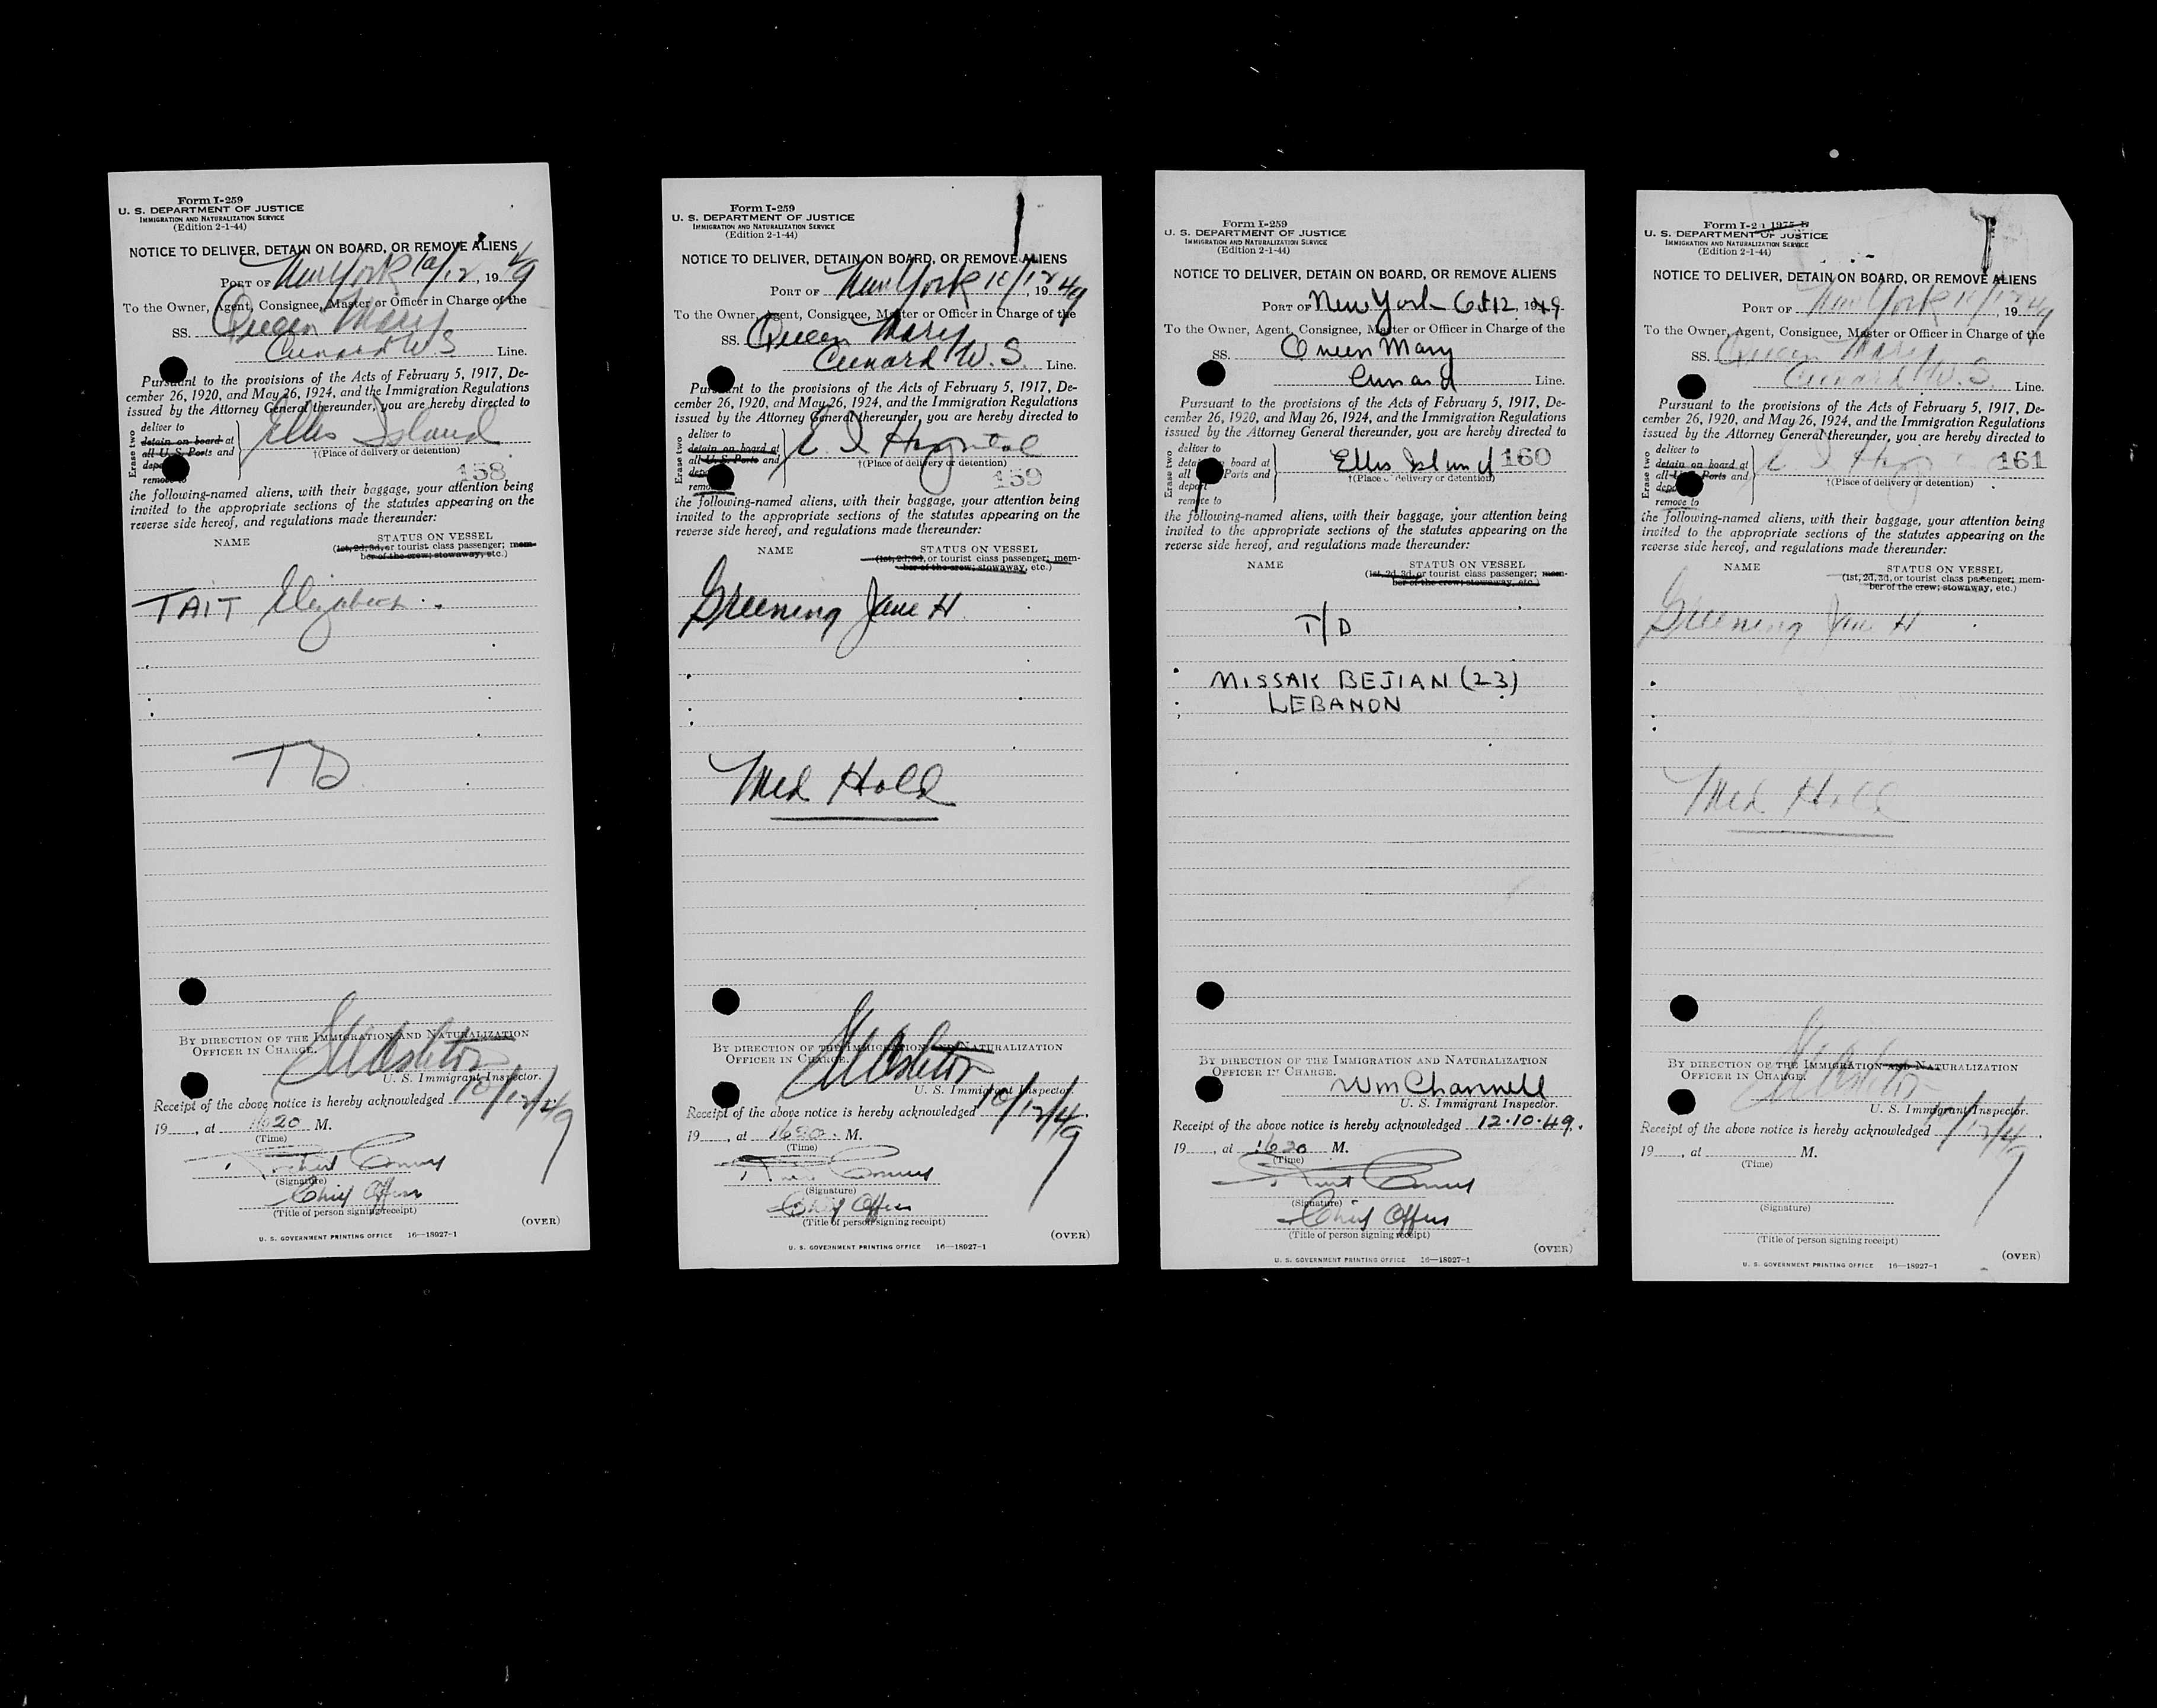 Form I-259
U. S. DEPARTMENT OF JUSTICE
IMMIGRATION AND NATURALIZATION SERVICE
(Edition 2-1-44)
NOTICE TO DELIVER, DETAIN ON BOARD, OR REMOVE ALIENS
PORT OF New York 10/12, 1949
To the Owner, Agent, Consignee, Master or Officer in Charge of the
SS. Queen Mary
Cunard W S Line.
Pursuant to the provisions of the Acts of February 5, 1917, De-
cember 26, 1920, and May 26, 1924, and the Immigration Regulations
issued by the Attorney General thereunder, you are hereby directed to
Erase two
deliver to
detain on board at
all U. S. Ports and
remove to
Ellis Island
†(Place of delivery or detention)
158
the following-named aliens, with their baggage, your attention being
invited to the appropriate sections of the statutes appearing on the
reverse side hereof, and regulations made thereunder:
NAME STATUS ON VESSEL
(1st, 2d, 3d, or tourist class passenger; mem-
ber of the crew; stowaway, etc.)
TAIT Elizabeth
TD
BY DIRECTION OF THE IMMIGRATION AND NATURALIZATION
OFFICER IN CHARGE.
U. S. Immigrant Inspector.
Receipt of the above notice is hereby acknowledged 10/12/49
19____, at 1620 M.
(Time)
(Signature)
Chief Officer
(Title of person signing receipt)
(OVER)
U. S. GOVERNMENT PRINTING OFFICE 16—18927-1
Form I-259
U. S. DEPARTMENT OF JUSTICE
IMMIGRATION AND NATURALIZATION SERVICE
(Edition 2-1-44)
NOTICE TO DELIVER, DETAIN ON BOARD, OR REMOVE ALIENS
PORT OF New York 10/12 1949
To the Owner, Agent, Consignee, Master or Officer in Charge of the
SS. Queen Mary
Cunard W. S. Line.
Pursuant to the provisions of the Acts of February 5, 1917, De-
cember 26, 1920, and May 26, 1924, and the Immigration Regulations
issued by the Attorney General thereunder, you are hereby directed to
Erase two
deliver to
detain on board at
all U. S. Ports and
E. I. Hospital
†(Place of delivery or detention)
159
the following-named aliens, with their baggage, your attention being
invited to the appropriate sections of the statutes appearing on the
reverse side hereof, and regulations made thereunder:
NAME STATUS ON VESSEL
(1st, 2d, 3d, or tourist class passenger; mem-
ber of the crew; stowaway, etc.)
Greening Jane H
Med Hold
BY DIRECTION OF THE IMMIGRATION AND NATURALIZATION
OFFICER IN CHARGE.
U. S. Immigrant Inspector.
Receipt of the above notice is hereby acknowledged 10/12/49
19____, at 1620. M.
(Time)
(Signature)
Chief Officer
(Title of person signing receipt)
(OVER)
U. S. GOVERNMENT PRINTING OFFICE 16—18927-1
Form I-259
U. S. DEPARTMENT OF JUSTICE
IMMIGRATION AND NATURALIZATION SERVICE
(Edition 2-1-44)
NOTICE TO DELIVER, DETAIN ON BOARD, OR REMOVE ALIENS
PORT OF New York Oct 12, 1949.
To the Owner, Agent, Consignee, Master or Officer in Charge of the
SS. Queen Mary
Cunard Line.
Pursuant to the provisions of the Acts of February 5, 1917, De-
cember 26, 1920, and May 26, 1924, and the Immigration Regulations
issued by the Attorney General thereunder, you are hereby directed to
Erase two
deliver to
board at
all Ports and
remove to
Ellis Island 160
†(Place of delivery or detention)
the following-named aliens, with their baggage, your attention being
invited to the appropriate sections of the statutes appearing on the
reverse side hereof, and regulations made thereunder:
NAME STATUS ON VESSEL
(1st, 2d, 3d, or tourist class passenger; mem-
ber of the crew; stowaway, etc.)
T/D
MISSAK BEJIAN (23)
LEBANON
BY DIRECTION OF THE IMMIGRATION AND NATURALIZATION
OFFICER IN CHARGE.
Wm Channell
U. S. Immigrant Inspector.
Receipt of the above notice is hereby acknowledged 12.10.49.
19____, at 1620 M.
(Time)
(Signature)
Chief Officer
(Title of person signing receipt)
(OVER)
U. S. GOVERNMENT PRINTING OFFICE 16—18927-1
Form I-2
U. S. DEPARTMENT OF JUSTICE
IMMIGRATION AND NATURALIZATION SERVICE
(Edition 2-1-44)
NOTICE TO DELIVER, DETAIN ON BOARD, OR REMOVE ALIENS
PORT OF New York 10/12, 1949
To the Owner, Agent, Consignee, Master or Officer in Charge of the
SS. Queen Mary
Cunard W. S. Line.
Pursuant to the provisions of the Acts of February 5, 1917, De-
cember 26, 1920, and May 26, 1924, and the Immigration Regulations
issued by the Attorney General thereunder, you are hereby directed to
Erase two
deliver to
detain on board at
all Ports and
remove to
E I Hosp 161
†(Place of delivery or detention)
the following-named aliens, with their baggage, your attention being
invited to the appropriate sections of the statutes appearing on the
reverse side hereof, and regulations made thereunder:
NAME STATUS ON VESSEL
(1st, 2d, 3d, or tourist class passenger; mem-
ber of the crew; stowaway, etc.)
Greening Jane H
Med Hold
BY DIRECTION OF THE IMMIGRATION AND NATURALIZATION
OFFICER IN CHARGE.
U. S. Immigrant Inspector.
Receipt of the above notice is hereby acknowledged 10/12/49
19____, at ____ M.
(Time)
(Signature)
(Title of person signing receipt)
(OVER)
U. S. GOVERNMENT PRINTING OFFICE 16—18927-1